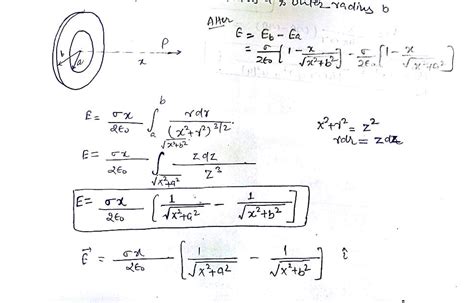 outer radius b
After
E = E_b - E_a
= σ/2ε₀ [1 - x/√(x²+b²)] - σ/2ε₀ [1 - x/√(x²+a²)]
b a x P
E = σx/2ε₀ ∫_a^b rdr/(x²+r²)^{3/2}
x²+r² = z²
rdr = zdz
E = σx/2ε₀ ∫_{√(x²+a²)}^{√(x²+b²)} zdz/z³
E = σx/2ε₀ [1/√(x²+a²) - 1/√(x²+b²)]
E⃗ = σx/2ε₀ [1/√(x²+a²) - 1/√(x²+b²)] î